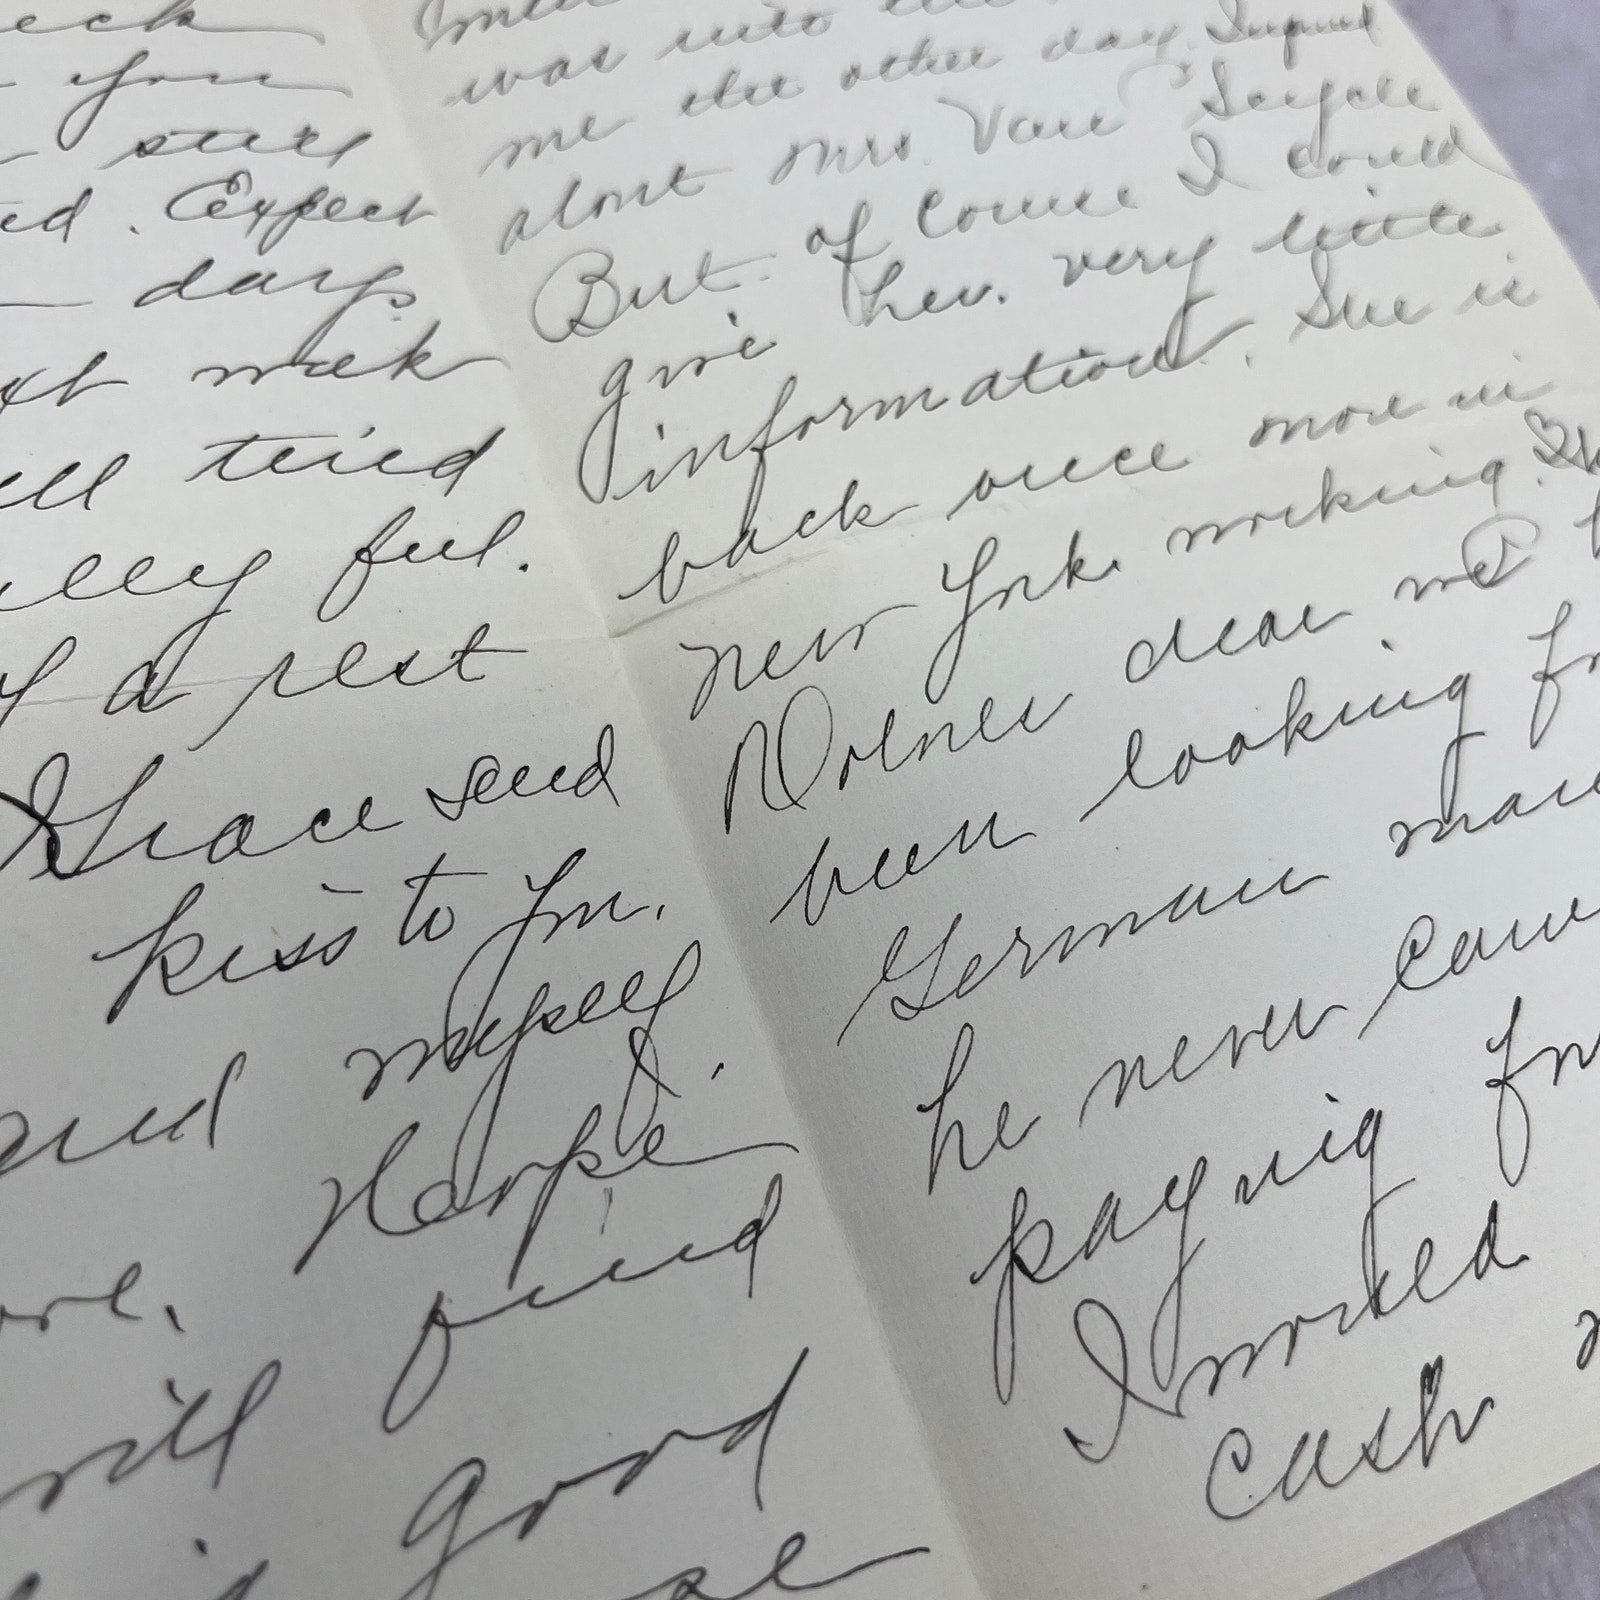 you
still
Expect
days
week
tired
feel.
a rest
Grace send
kiss to you.
and myself
Harpe
will find
good
was into
me the other day. Inquired
about Mrs. Van
But of course I could
give her. very little
information. She is
back once more in
New York. working.
dear me
been looking
German
he never
paying
I worked
Cash